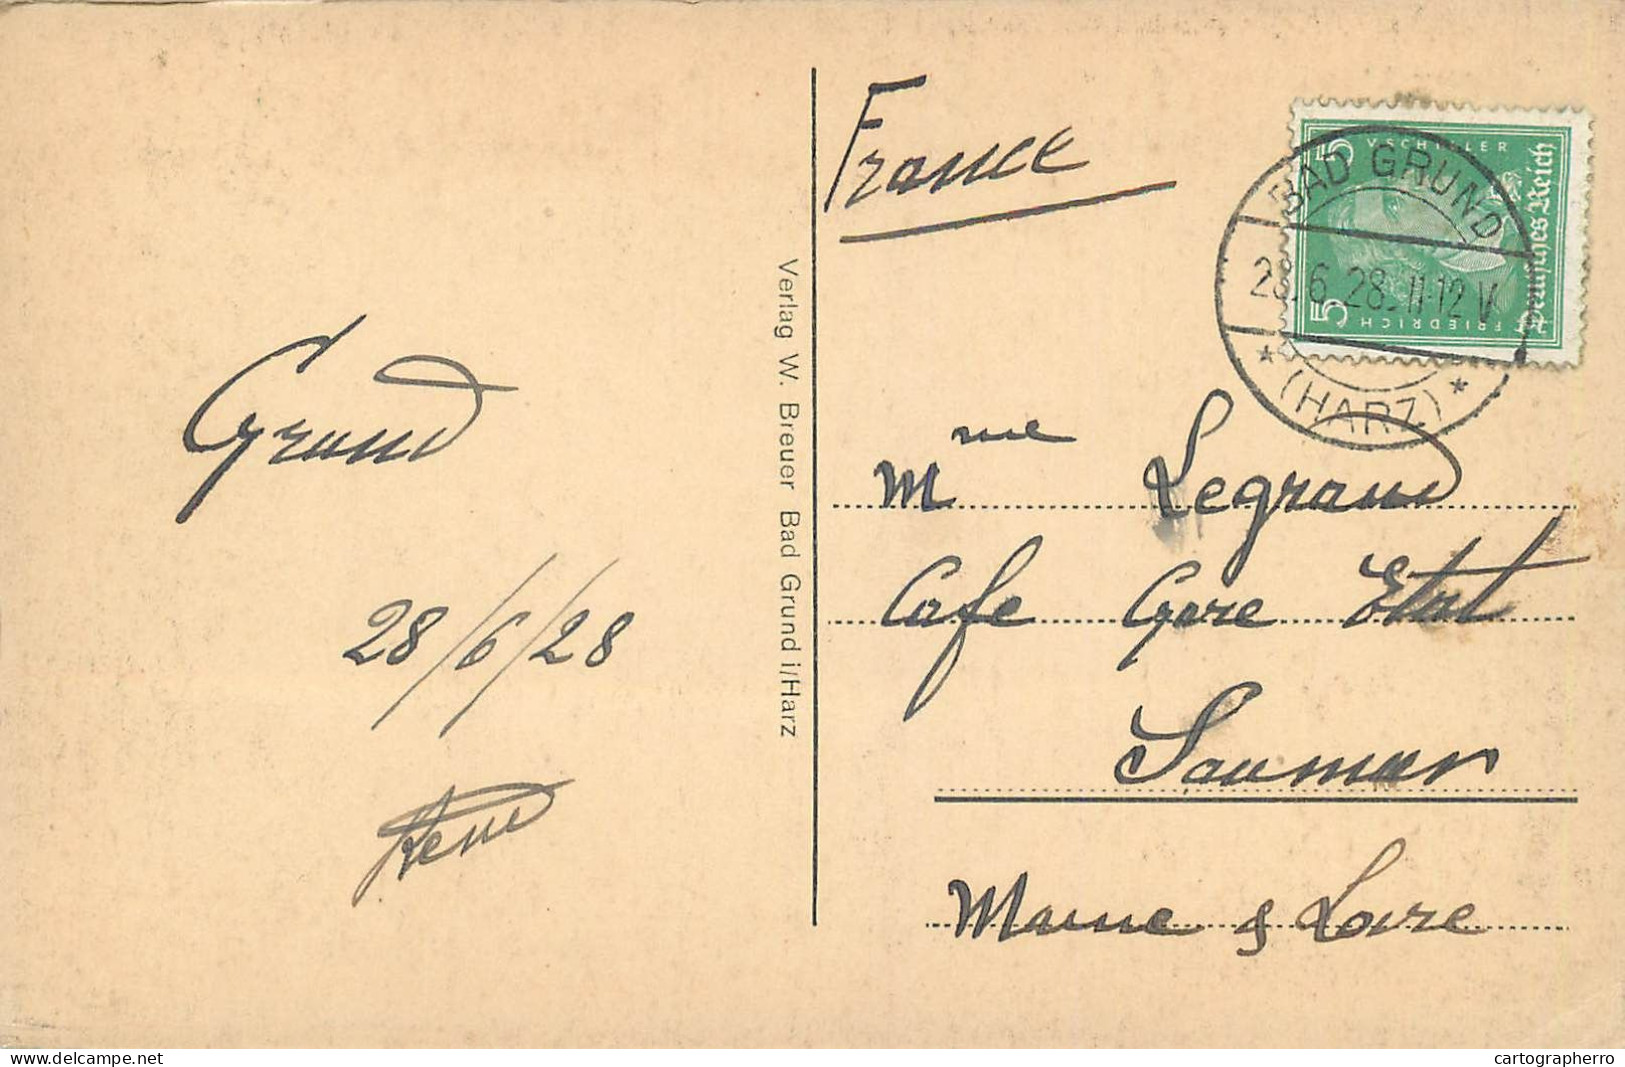 Grund
28/6/28
Verlag W. Breuer Bad Grund i/Harz
France
5 V SCHILLER
5 FRIEDRICH
Deutsches Reich
BAD GRUND
28.6.28.11-12 V
* (HARZ) *
Mme Legrand
Cafe Gare Etat
Saumur
Maine & Loire
delcampe.net
cartographerro